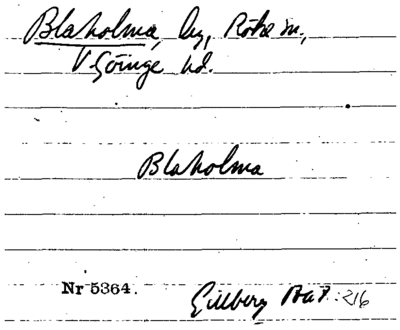 Blaholma, by, Röke sn,
V Göinge hd.
Blaholma
Nr 5364.
Gillberg 216